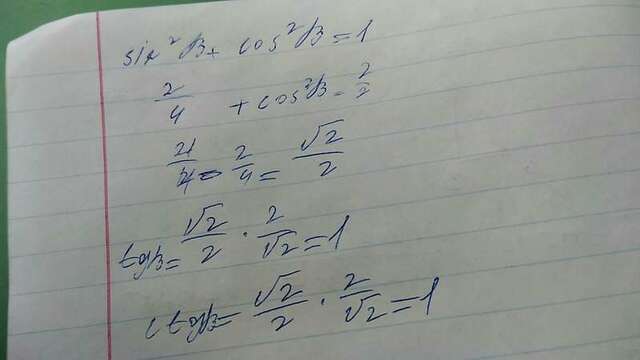 sin²β + cos²β = 1
2/4 + cos²β = 2/2
4/4 - 2/4 = √2/2
tgβ = √2/2 · 2/√2 = 1
ctgβ = √2/2 · 2/√2 = 1